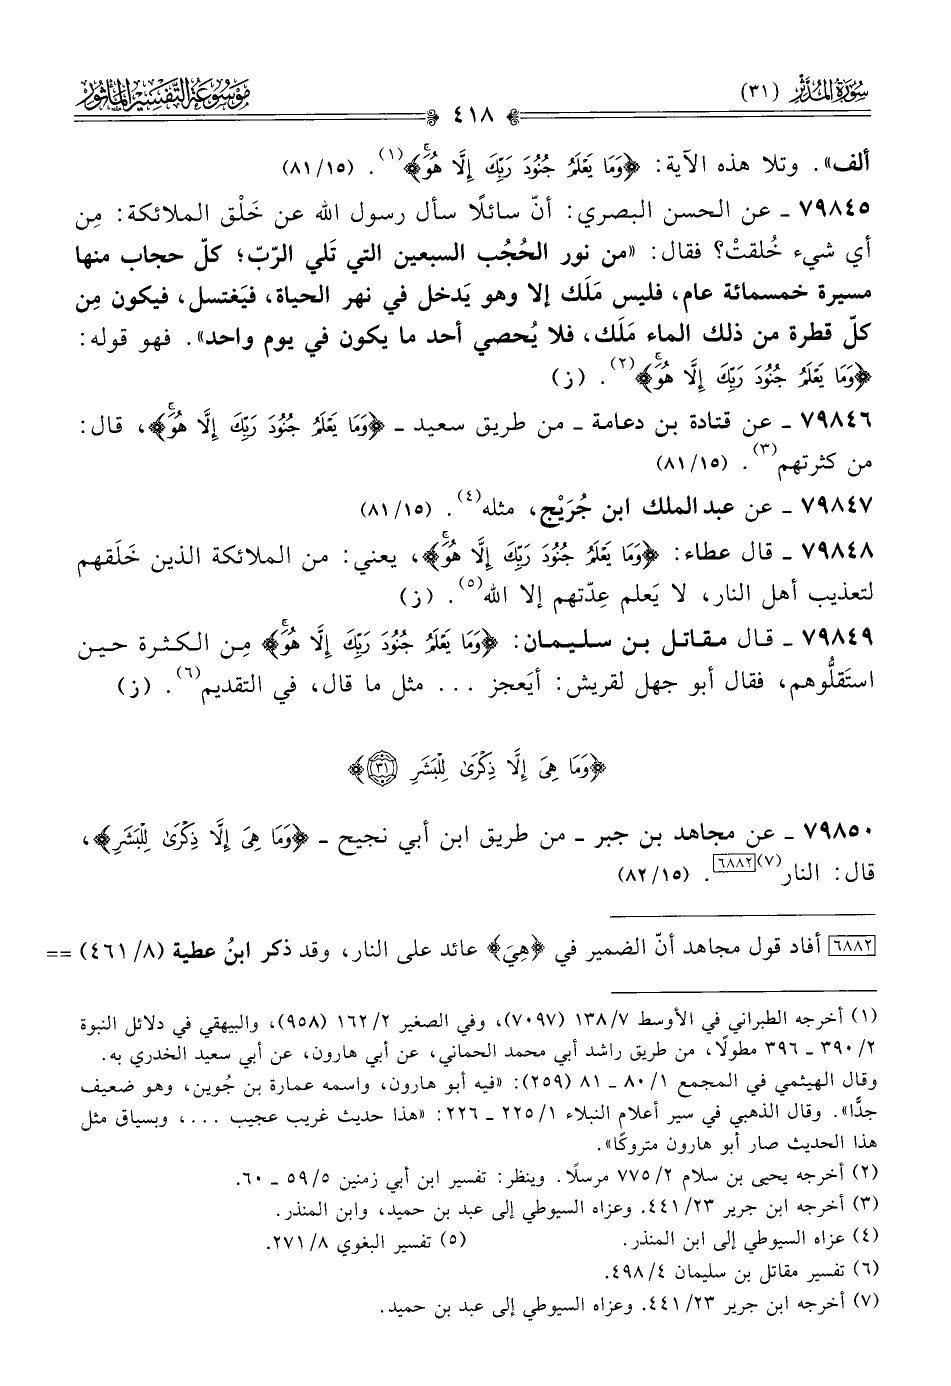 سُورَةُ المُدَّثِّر (٣١)
٤١٨
مَوْسُوعَةُ التَّفْسِيرِ المَأْثُور
ألف». وتلا هذه الآية: ﴿وَمَا يَعْلَمُ جُنُودَ رَبِّكَ إِلَّا هُوَۚ﴾(١). (١٥/ ٨١)
٧٩٨٤٥ ـ عن الحسن البصري: أنّ سائلًا سأل رسول الله عن خَلْق الملائكة: مِن
أي شيء خُلقتْ؟ فقال: «من نور الحُجُب السبعين التي تَلي الرّبّ؛ كلّ حجاب منها
مسيرة خمسمائة عام، فليس مَلَك إلا وهو يَدخل في نهر الحياة، فيَغتسل، فيكون مِن
كلّ قطرة من ذلك الماء مَلَك، فلا يُحصي أحد ما يكون في يوم واحد». فهو قوله:
﴿وَمَا يَعْلَمُ جُنُودَ رَبِّكَ إِلَّا هُوَۚ﴾(٢). (ز)
٧٩٨٤٦ ـ عن قتادة بن دعامة ـ من طريق سعيد ـ ﴿وَمَا يَعْلَمُ جُنُودَ رَبِّكَ إِلَّا هُوَۚ﴾، قال:
من كثرتهم(٣). (١٥/ ٨١)
٧٩٨٤٧ ـ عن عبد الملك ابن جُرَيْج، مثله(٤). (١٥/ ٨١)
٧٩٨٤٨ ـ قال عطاء: ﴿وَمَا يَعْلَمُ جُنُودَ رَبِّكَ إِلَّا هُوَۚ﴾، يعني: من الملائكة الذين خَلَقهم
لتعذيب أهل النار، لا يَعلم عِدّتهم إلا الله(٥). (ز)
٧٩٨٤٩ ـ قال مقاتل بن سليمان: ﴿وَمَا يَعْلَمُ جُنُودَ رَبِّكَ إِلَّا هُوَۚ﴾ مِن الكثرة حين
استَقلُّوهم، فقال أبو جهل لقريش: أيَعجز ... مثل ما قال، في التقديم(٦). (ز)
﴿وَمَا هِىَ إِلَّا ذِكْرَىٰ لِلْبَشَرِ ٣١﴾
٧٩٨٥٠ ـ عن مجاهد بن جبر ـ من طريق ابن أبي نجيح ـ ﴿وَمَا هِىَ إِلَّا ذِكْرَىٰ لِلْبَشَرِ﴾،
قال: النار(٧)[٦٨٨٢]. (١٥/ ٨٢)
[٦٨٨٢] أفاد قول مجاهد أنّ الضمير في ﴿هِيَ﴾ عائد على النار، وقد ذكر ابنُ عطية (٨/ ٤٦١) ==
(١) أخرجه الطبراني في الأوسط ٧/ ١٣٨ (٧٠٩٧)، وفي الصغير ٢/ ١٦٢ (٩٥٨)، والبيهقي في دلائل النبوة
٢/ ٣٩٠ ـ ٣٩٦ مطولًا، من طريق راشد أبي محمد الحماني، عن أبي هارون، عن أبي سعيد الخدري به.
وقال الهيثمي في المجمع ١/ ٨٠ ـ ٨١ (٢٥٩): «فيه أبو هارون، واسمه عمارة بن جُوين، وهو ضعيف
جدًّا». وقال الذهبي في سير أعلام النبلاء ١/ ٢٢٥ ـ ٢٢٦: «هذا حديث غريب عجيب ...، وبسياق مثل
هذا الحديث صار أبو هارون متروكًا».
(٢) أخرجه يحيى بن سلام ٢/ ٧٧٥ مرسلًا. وينظر: تفسير ابن أبي زمنين ٥/ ٥٩ ـ ٦٠.
(٣) أخرجه ابن جرير ٢٣/ ٤٤١. وعزاه السيوطي إلى عبد بن حميد، وابن المنذر.
(٤) عزاه السيوطي إلى ابن المنذر. (٥) تفسير البغوي ٨/ ٢٧١.
(٦) تفسير مقاتل بن سليمان ٤/ ٤٩٨.
(٧) أخرجه ابن جرير ٢٣/ ٤٤١. وعزاه السيوطي إلى عبد بن حميد.